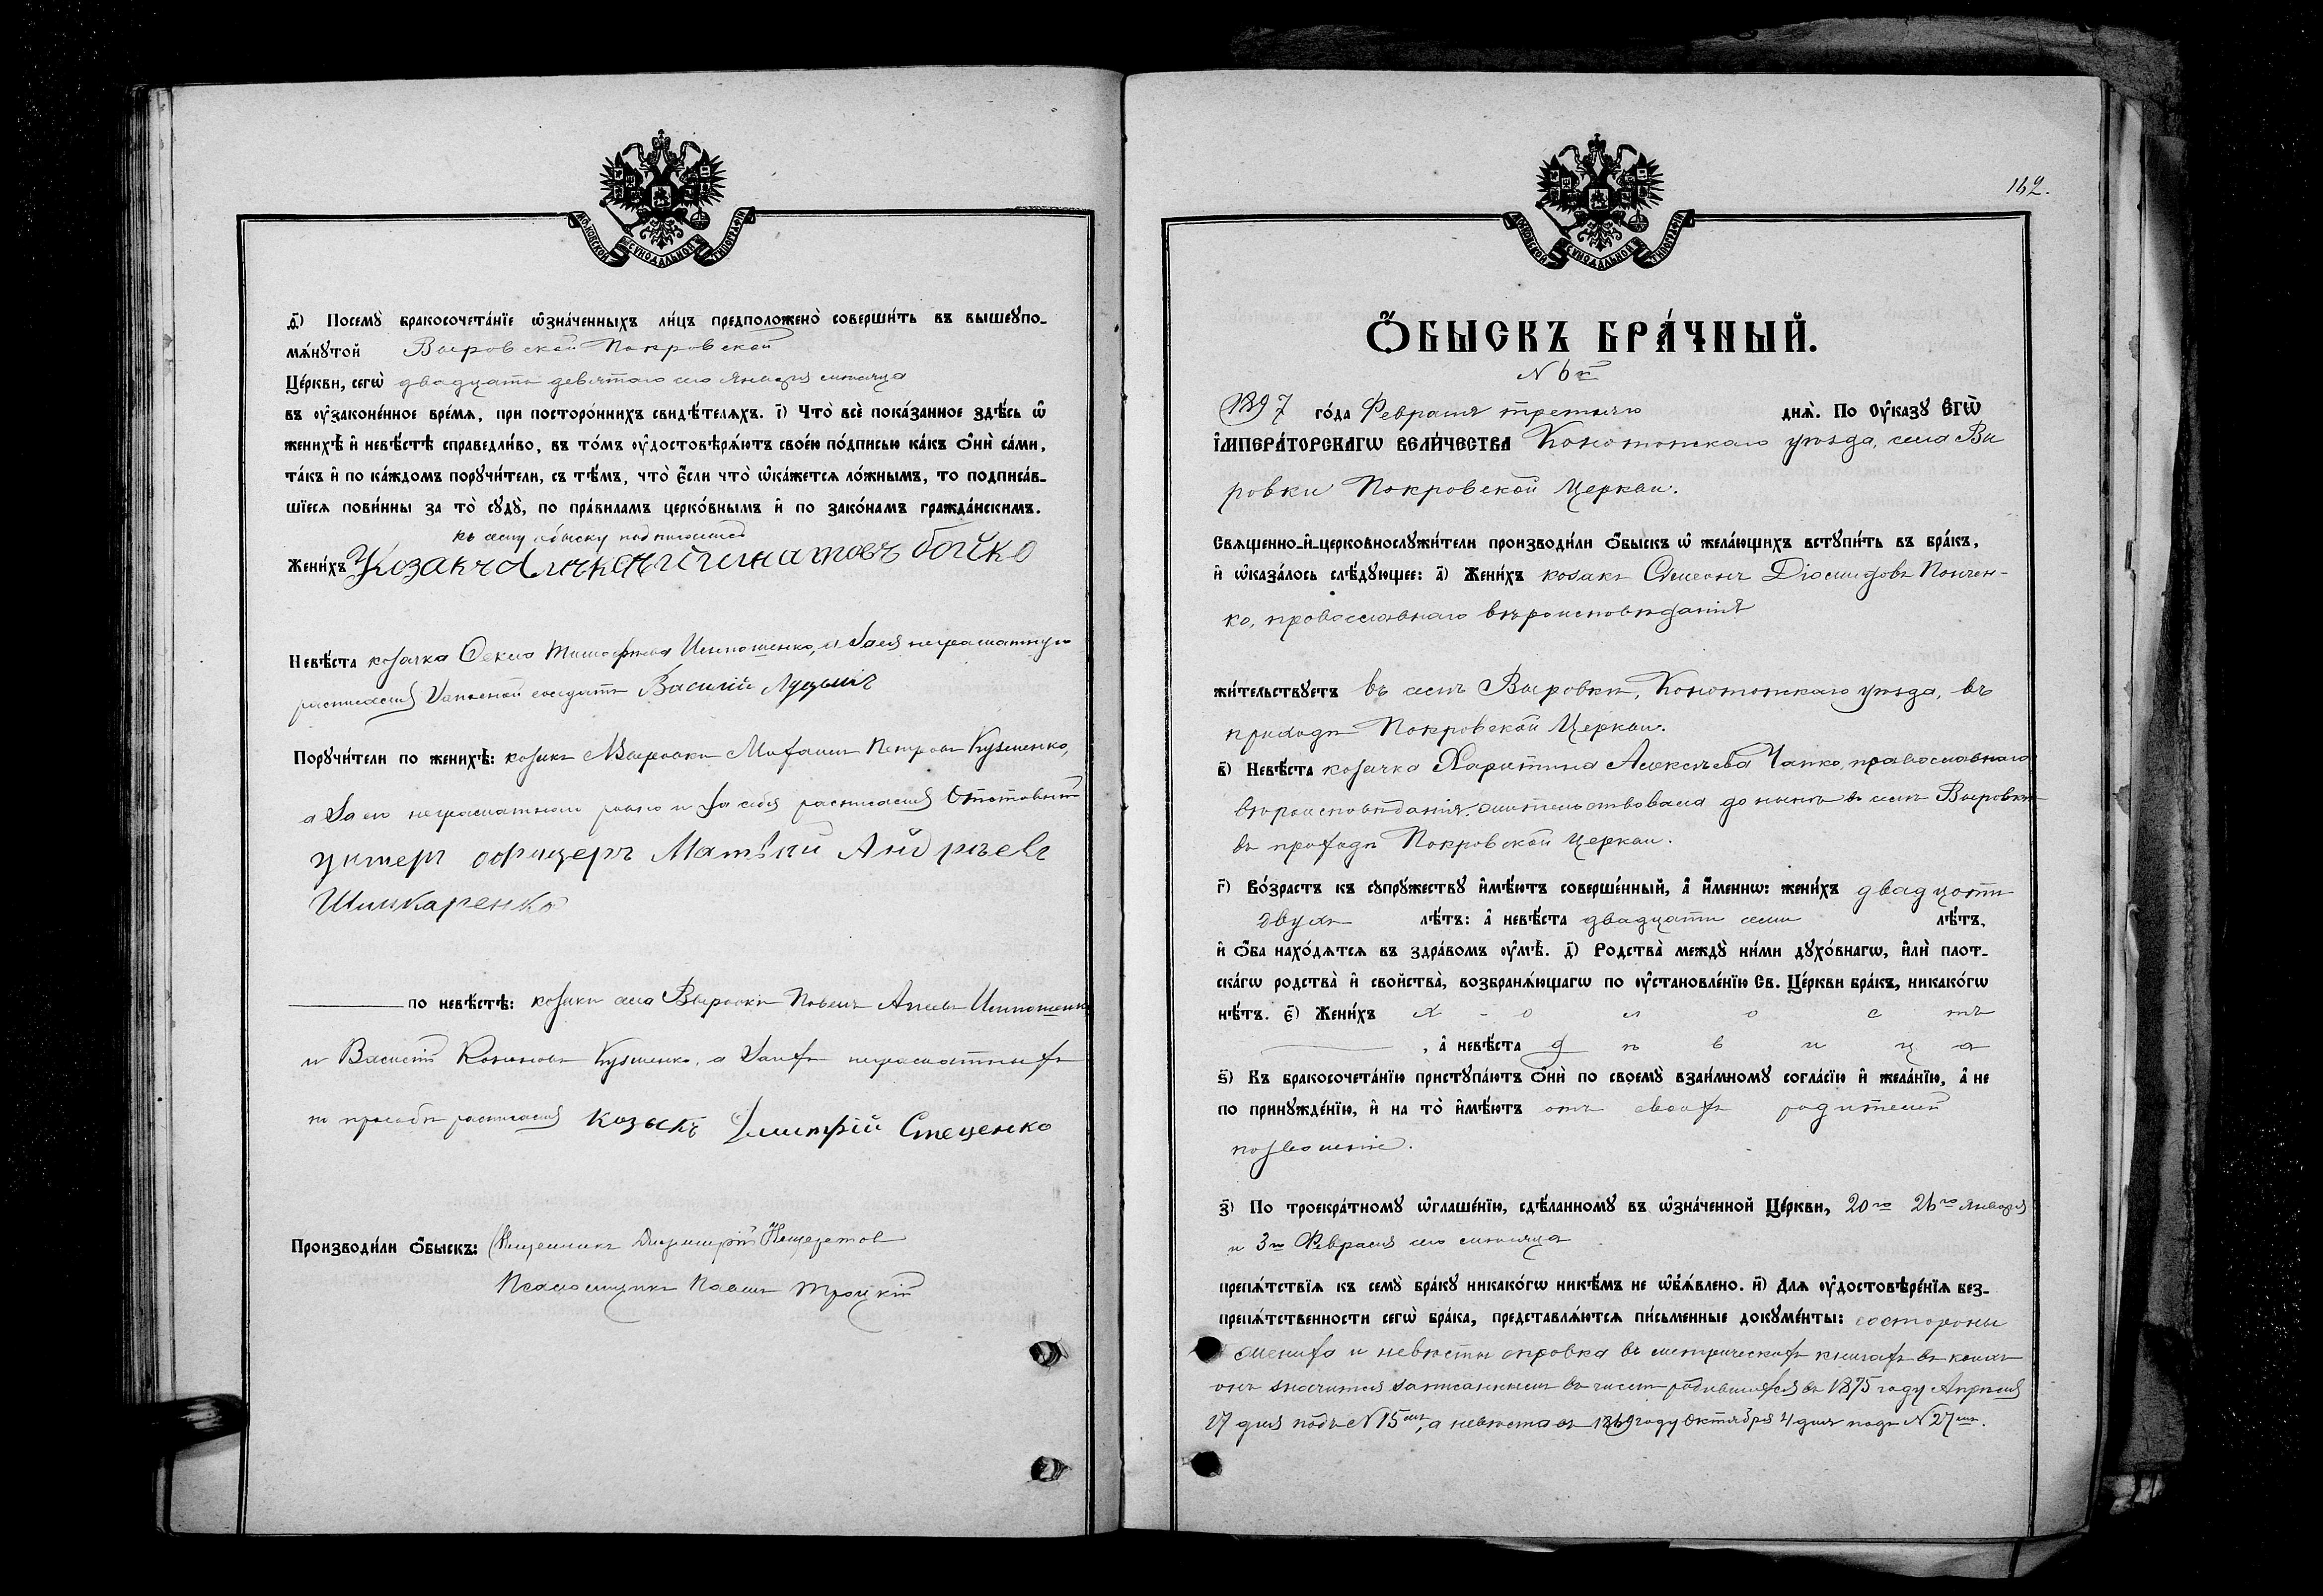 МОСКОВСКОЙ СУНОДАЛЬНОЙ ТИПОГРАФІИ
д҃) Посемꙋ̀ бракосочета́нїе ѡ҆зна́ченныхъ ли́цъ предположено̀ соверши́ть въ вышеꙋпо-
мѧ́нꙋтой Выровской Покровской
Це́ркви, сегѡ̀ двадцать девятаго сего Января мѣсяца
въ ᲂу҆законе́нное вре́мѧ, при посторо́ннихъ свидѣ́телѧхъ. і҃) Что̀ всѐ пока́занное здѣ́сь ѡ҆
женихѣ̀ и҆ невѣ́стѣ справедли́во, въ то́мъ ᲂу҆достовѣрѧ́ютъ свое́ю по́дписью ка́къ ѻ҆нѝ са́ми,
та́къ и҆ по ка́ждомъ порꙋчи́тели, съ тѣ́мъ, что̀ є҆́сли что̀ ѡ҆ка́жетсѧ ло́жнымъ, то подписа́в-
шїесѧ пови́нны за то̀ сꙋдꙋ̀, по пра́виламъ церко́внымъ и҆ по зако́намъ гражда́нскимъ.
къ сему обыску подписался
Жени́хъ Козакъ Бойко
Невѣ́ста козачка Фекла Тимофѣева а за нея неграмотную
росписался Запасной солдатъ Василій Луцый
Порꙋчи́тели по женихѣ̀: козакъ с. Выровки Михаилъ Петровъ Кузьменко,
а за его неграмотнаго равно и за себя росписался Отставный
унтеръ офицеръ Матвѣй Андрѣевъ
Шинкаренко
по невѣ́стѣ: козаки села Выровки Павелъ
и Василій Кононовъ Кузьменко, а за ихъ неграмотныхъ
по просьбѣ росписался козакъ Дмитрій Стеценко
Производи́ли ѻ҆́быскъ: Священникъ Димитрій
Псаломщикъ Павелъ Троцкій
162.
МОСКОВСКОЙ СУНОДАЛЬНОЙ ТИПОГРАФІИ
Ѻ҆́БЫСКЪ БРА́ЧНЫЙ.
№ 6й
1897 го́да Февраля третьяго днѧ̀. По Оу҆ка́зꙋ Є҆гѡ̀
І҆МПЕРА́ТОРСКАГѠ ВЕЛИ́ЧЕСТВА Конотопскаго уѣзда, села Вы
ровки Покровской Церкви.
Свѧщенно-и҆-церковнослꙋжи́тели производи́ли ѻ҆́быскъ ѡ҆ жела́ющихъ встꙋпи́ть въ бра́къ,
и҆ ѡ҆каза́лось слѣ́дꙋющее: а҃) Жени́хъ козакъ Симеонъ Діомидовъ Попчен-
ко, православнаго вѣроисповѣданія
жи́тельствꙋетъ въ селѣ Выровкѣ, Конотопскаго уѣзда, въ
приходѣ Покровской Церкви.
в҃) Невѣ́ста козачка Харитина Алексѣева Чапко, православнаго
вѣроисповѣданія, жительствовала до нынѣ въ селѣ Выровкѣ
въ приходѣ Покровской Церкви.
г҃) Во́зрастъ къ сꙋпрꙋ́жествꙋ и҆мѣ́ютъ соверше́нный, а҆ и҆́меннѡ: жени́хъ двадцати
двухъ лѣ́тъ: а҆ невѣ́ста двадцати семи лѣ́тъ,
и҆ ѻ҆́ба нахо́дѧтсѧ въ здра́вомъ ᲂу҆мѣ̀. д҃) Родства̀ междꙋ̀ ни́ми дꙋхо́внагѡ, и҆лѝ плот-
ска́гѡ родства̀ и҆ свойства̀, возбранѧ́ющагѡ по ᲂу҆становле́нїю Св. Це́ркви бра́къ, никако́гѡ
нѣ́тъ. є҃) Жени́хъ х - о л о с тъ
, а҆ невѣ́ста д ѣ в и ц а
ѕ҃) Къ бракосочета́нїю пристꙋпа́ютъ ѻ҆нѝ по своемꙋ̀ взаи́мномꙋ согла́сїю и҆ жела́нїю, а҆ не
по принꙋжде́нїю, и҆ на то̀ и҆мѣ́ютъ отъ своихъ родителей
позволеніе.
з҃) По троекра́тномꙋ ѡ҆глаше́нїю, сдѣ́ланномꙋ въ ѡ҆зна́ченной Це́ркви, 20го 26го Января
и 3го Февраля сего мѣсяца
препѧ́тствїѧ къ семꙋ̀ бра́кꙋ никако́гѡ никѣ́мъ не ѡ҆б̾ѧ́влено. и҃) Длѧ ᲂу҆достовѣре́нїѧ без-
препѧ́тственности сегѡ̀ бра́ка, представлѧ́ютсѧ пи́сьменные докꙋме́нты: состороны
жениха и невѣсты справка въ метрическихъ книгахъ въ коихъ
онъ значится записаннымъ въ числѣ родившихся въ 1875 году Апрѣля
17 дня подъ № 15мъ, а невѣста въ 1869 году Октября 4 дня подъ № 27мъ.